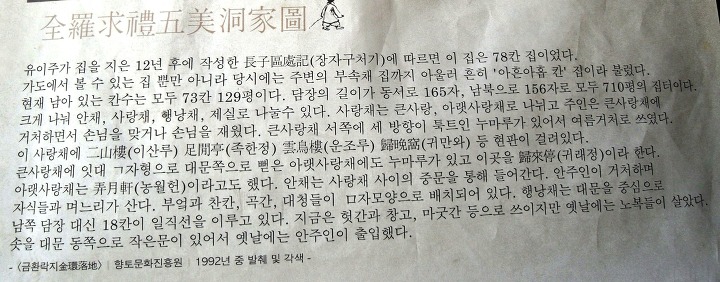 全羅求禮五美洞家圖
유이주가 집을 지은 12년 후에 작성한 長子區處記(장자구처기)에 따르면 이 집은 78칸 집이었다.
가도에서 볼 수 있는 집 뿐만 아니라 당시에는 주변의 부속채 집까지 아울러 흔히 '아흔아홉 칸' 집이라 불렀다.
현재 남아 있는 칸수는 모두 73칸 129평이다. 담장의 길이가 동서로 165자, 남북으로 156자로 모두 710평의 집터이다.
크게 나눠 안채, 사랑채, 행낭채, 제실로 나눌수 있다. 사랑채는 큰사랑, 아랫사랑채로 나뉘고 주인은 큰사랑채에
거처하면서 손님을 맞거나 손님을 재웠다. 큰사랑채 서쪽에 세 방향이 툭트인 누마루가 있어서 여름거처로 쓰였다.
이 사랑채에 二山樓(이산루) 足閒亭(족한정) 雲鳥樓(운조루) 歸晩窩(귀만와) 등 현판이 걸려있다.
큰사랑채에 잇대 ㄱ자형으로 대문쪽으로 뻗은 아랫사랑채에도 누마루가 있고 이곳을 歸來停(귀래정)이라 한다.
아랫사랑채는 弄月軒(농월헌)이라고도 했다. 안채는 사랑채 사이의 중문을 통해 들어간다. 안주인이 거처하며
자식들과 며느리가 산다. 부엌과 찬칸, 곡간, 대청들이 ㅁ자모양으로 배치되어 있다. 행낭채는 대문을 중심으로
남쪽 담장 대신 18칸이 일직선을 이루고 있다. 지금은 헛간과 창고, 마굿간 등으로 쓰이지만 옛날에는 노복들이 살았다.
솟을 대문 동쪽으로 작은문이 있어서 옛날에는 안주인이 출입했다.
- 〈금환락지金環落地〉 | 향토문화진흥원 | 1992년 중 발췌 및 각색 -